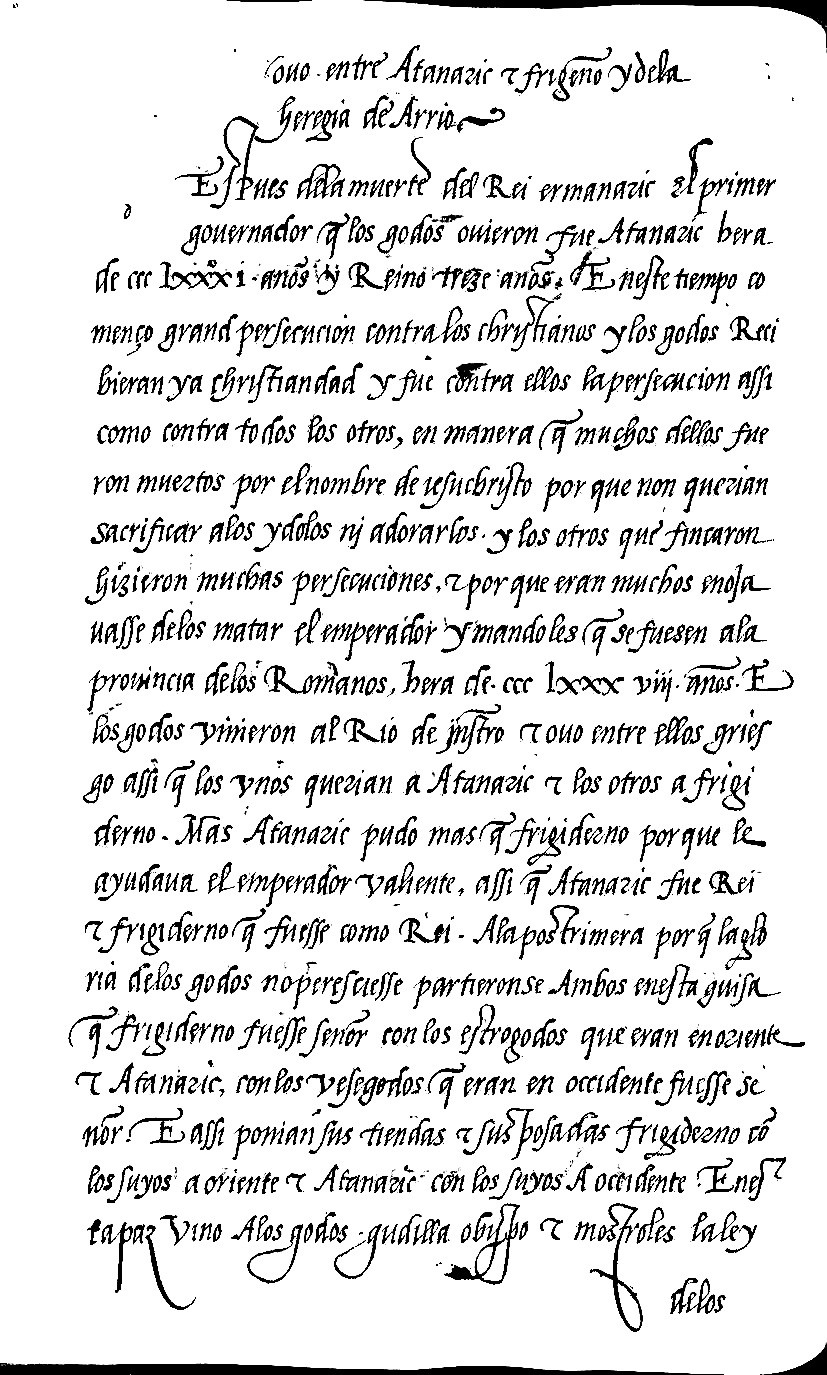 ouo. entre Atanaric τ frigeño y dela
heregia de Arrio
d
Espues dela muerte del Rei ermanaric El primer
gouernador q̃ los godos ouieron fue Atanaric hera
de ccc lxxxi. años y Reino treze años. E neste tiempo co
menço grand persecucion contra los christianos y los godos Reci
bieran ya christiandad y fue contra ellos la persecucion assi
como contra todos los otros, en manera q̃ muchos dellos fue
ron muertos por el nombre de iesuchristo por que non querian
sacrificar alos ydolos nj adorarlos. y los otros que fincaron
hizieron muchas persecuciones, τ por que eran muchos enoja
uasse delos matar el emperador y mandoles q̃ se fuesen ala
prouincia delos Romanos, hera de. ccc lxxx viij. años. E
los godos vinieron al Rio de jnstro τ ouo entre ellos gries
go assi q̃ los vnos querian a Atanaric τ los otros a frigi
derno. Mas Atanaric pudo mas q̃ frigiderno porque le
ayudaua el emperador valiente, assi q̃ Atanaric fue Rei
τ frigiderno q̃ fuesse como Rei. Ala postrimera porq̃ la glo
ria delos godos no peresciesse partieronse Ambos enesta guisa
q̃ frigiderno fuesse señor con los estrogodos que eran en oriente
τ Atanaric, con los vesegodos q̃ eran en occidente fuesse se
ñor. E assi ponian sus tiendas τ sus posadas frigiderno cõ
los suyos a oriente τ Atanaric con los suyos A occidente. E nes
ta paz vino A los godos. gudilla obispo τ mostroles la ley
delos